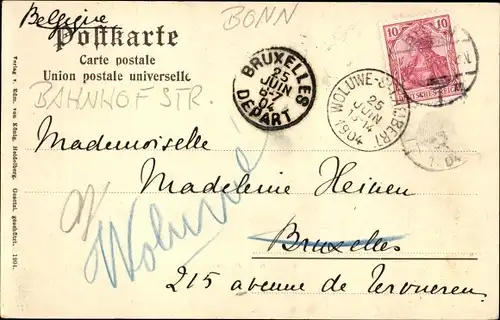 Belgique
BONN
Postkarte
Carte postale
Union postale universelle
BAHNHOFSTR.
Verlag v. Edm. von König, Heidelberg. Gesetzl. geschützt. 1901.
BRUXELLES
25
JUIN
6-7
04
DEPART
WOLUWE-ST-LAMBERT
25
JUIN
13-14
1904
10 10
DEUTSCHES REICH
04
Mademoiselle
Madeleine Heinen
Woluwe
Bruxelles
215 avenue de Tervueren